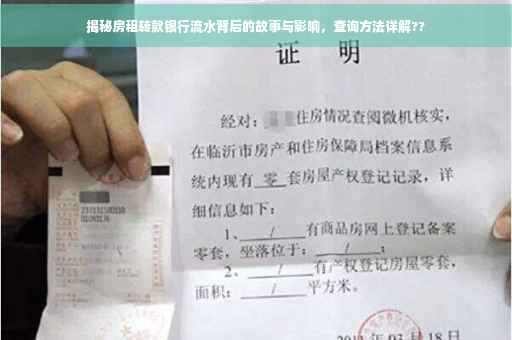 揭秘房租转款银行流水背后的故事与影响，查询方法详解??
证 明
经对：住房情况查阅微机核实，
在临沂市房产和住房保障局档案信息系
统内现有 零 套房屋产权登记记录，详
细信息如下：
1、 / 有商品房网上登记备案
零套，坐落位于： / ；
2、 / 有产权登记房屋零套，
面积： / 平方米。